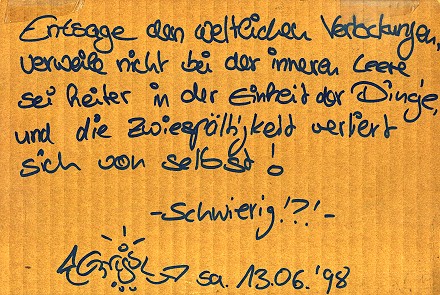 Entsage den weltlichen Verlockungen,
verweile nicht bei der inneren Leere
sei heiter in der Einheit der Dinge,
und die Zwiespältigkeit verliert
sich von selbst!
-Schwierig!?!-
Sa. 13.06.'98